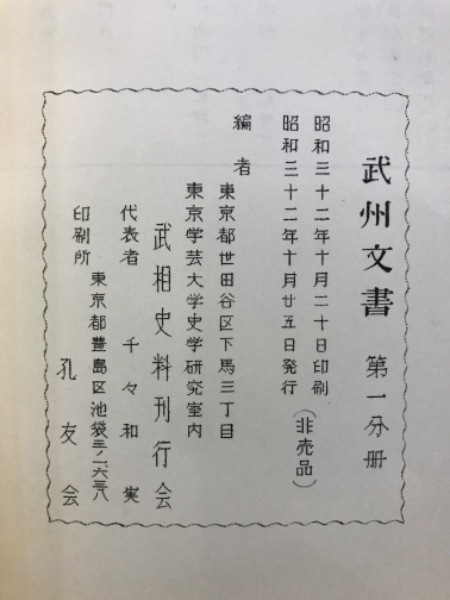 武州文書 第一分册
昭和三十二年十月二十日印刷
昭和三十二年十月廿五日発行 (非売品)
編者
東京都世田谷区下馬三丁目
東京学芸大学史学研究室内
武相史料刊行会
代表者 千々和実
印刷所
東京都豊島区池袋三ノ一六三八
孔友会